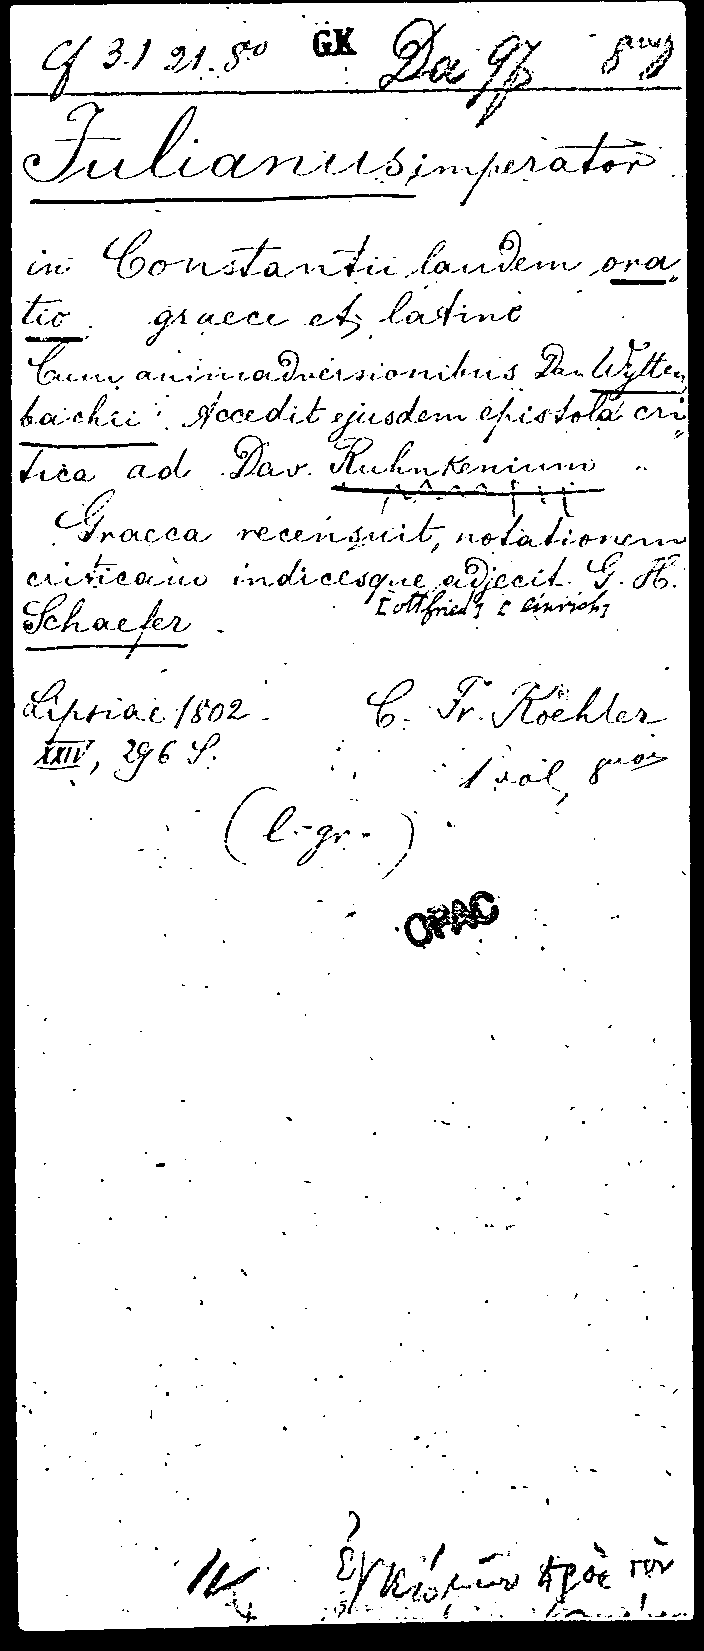 Cf 3.1 21. 80 GK Da 97 8
Julianus, imperator
in Constantii laudem ora„
tio. graece et latine
Cum animadversionibus Dan Wytten„
bachii. Accedit ejusdem epistola cri„
tica ad Dav. Ruhnkenium
Graeca recensuit, notationem
criticam indicesque adjecit G. H.
[ottfried] [einrich]
Schaefer.
Lipsiae 1802. C. Fr. Koehler
XXIV, 296 S.
1 vol, 8
(l.-gr.-)
OPAC
πρὸς τὸν